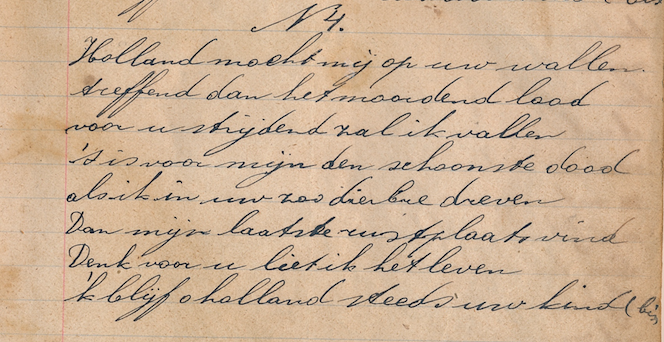 N 4.
Holland mocht mij op uw wallen
treffend dan het moordend lood
voor u strijdend zal ik vallen
't is voor mijn den schoonste dood
als ik in uw zoo dierbre dreven
Dan mijn laatste rustplaats vind
Denk voor u liet ik het leven
'k blijf o holland steeds uw kind (bis